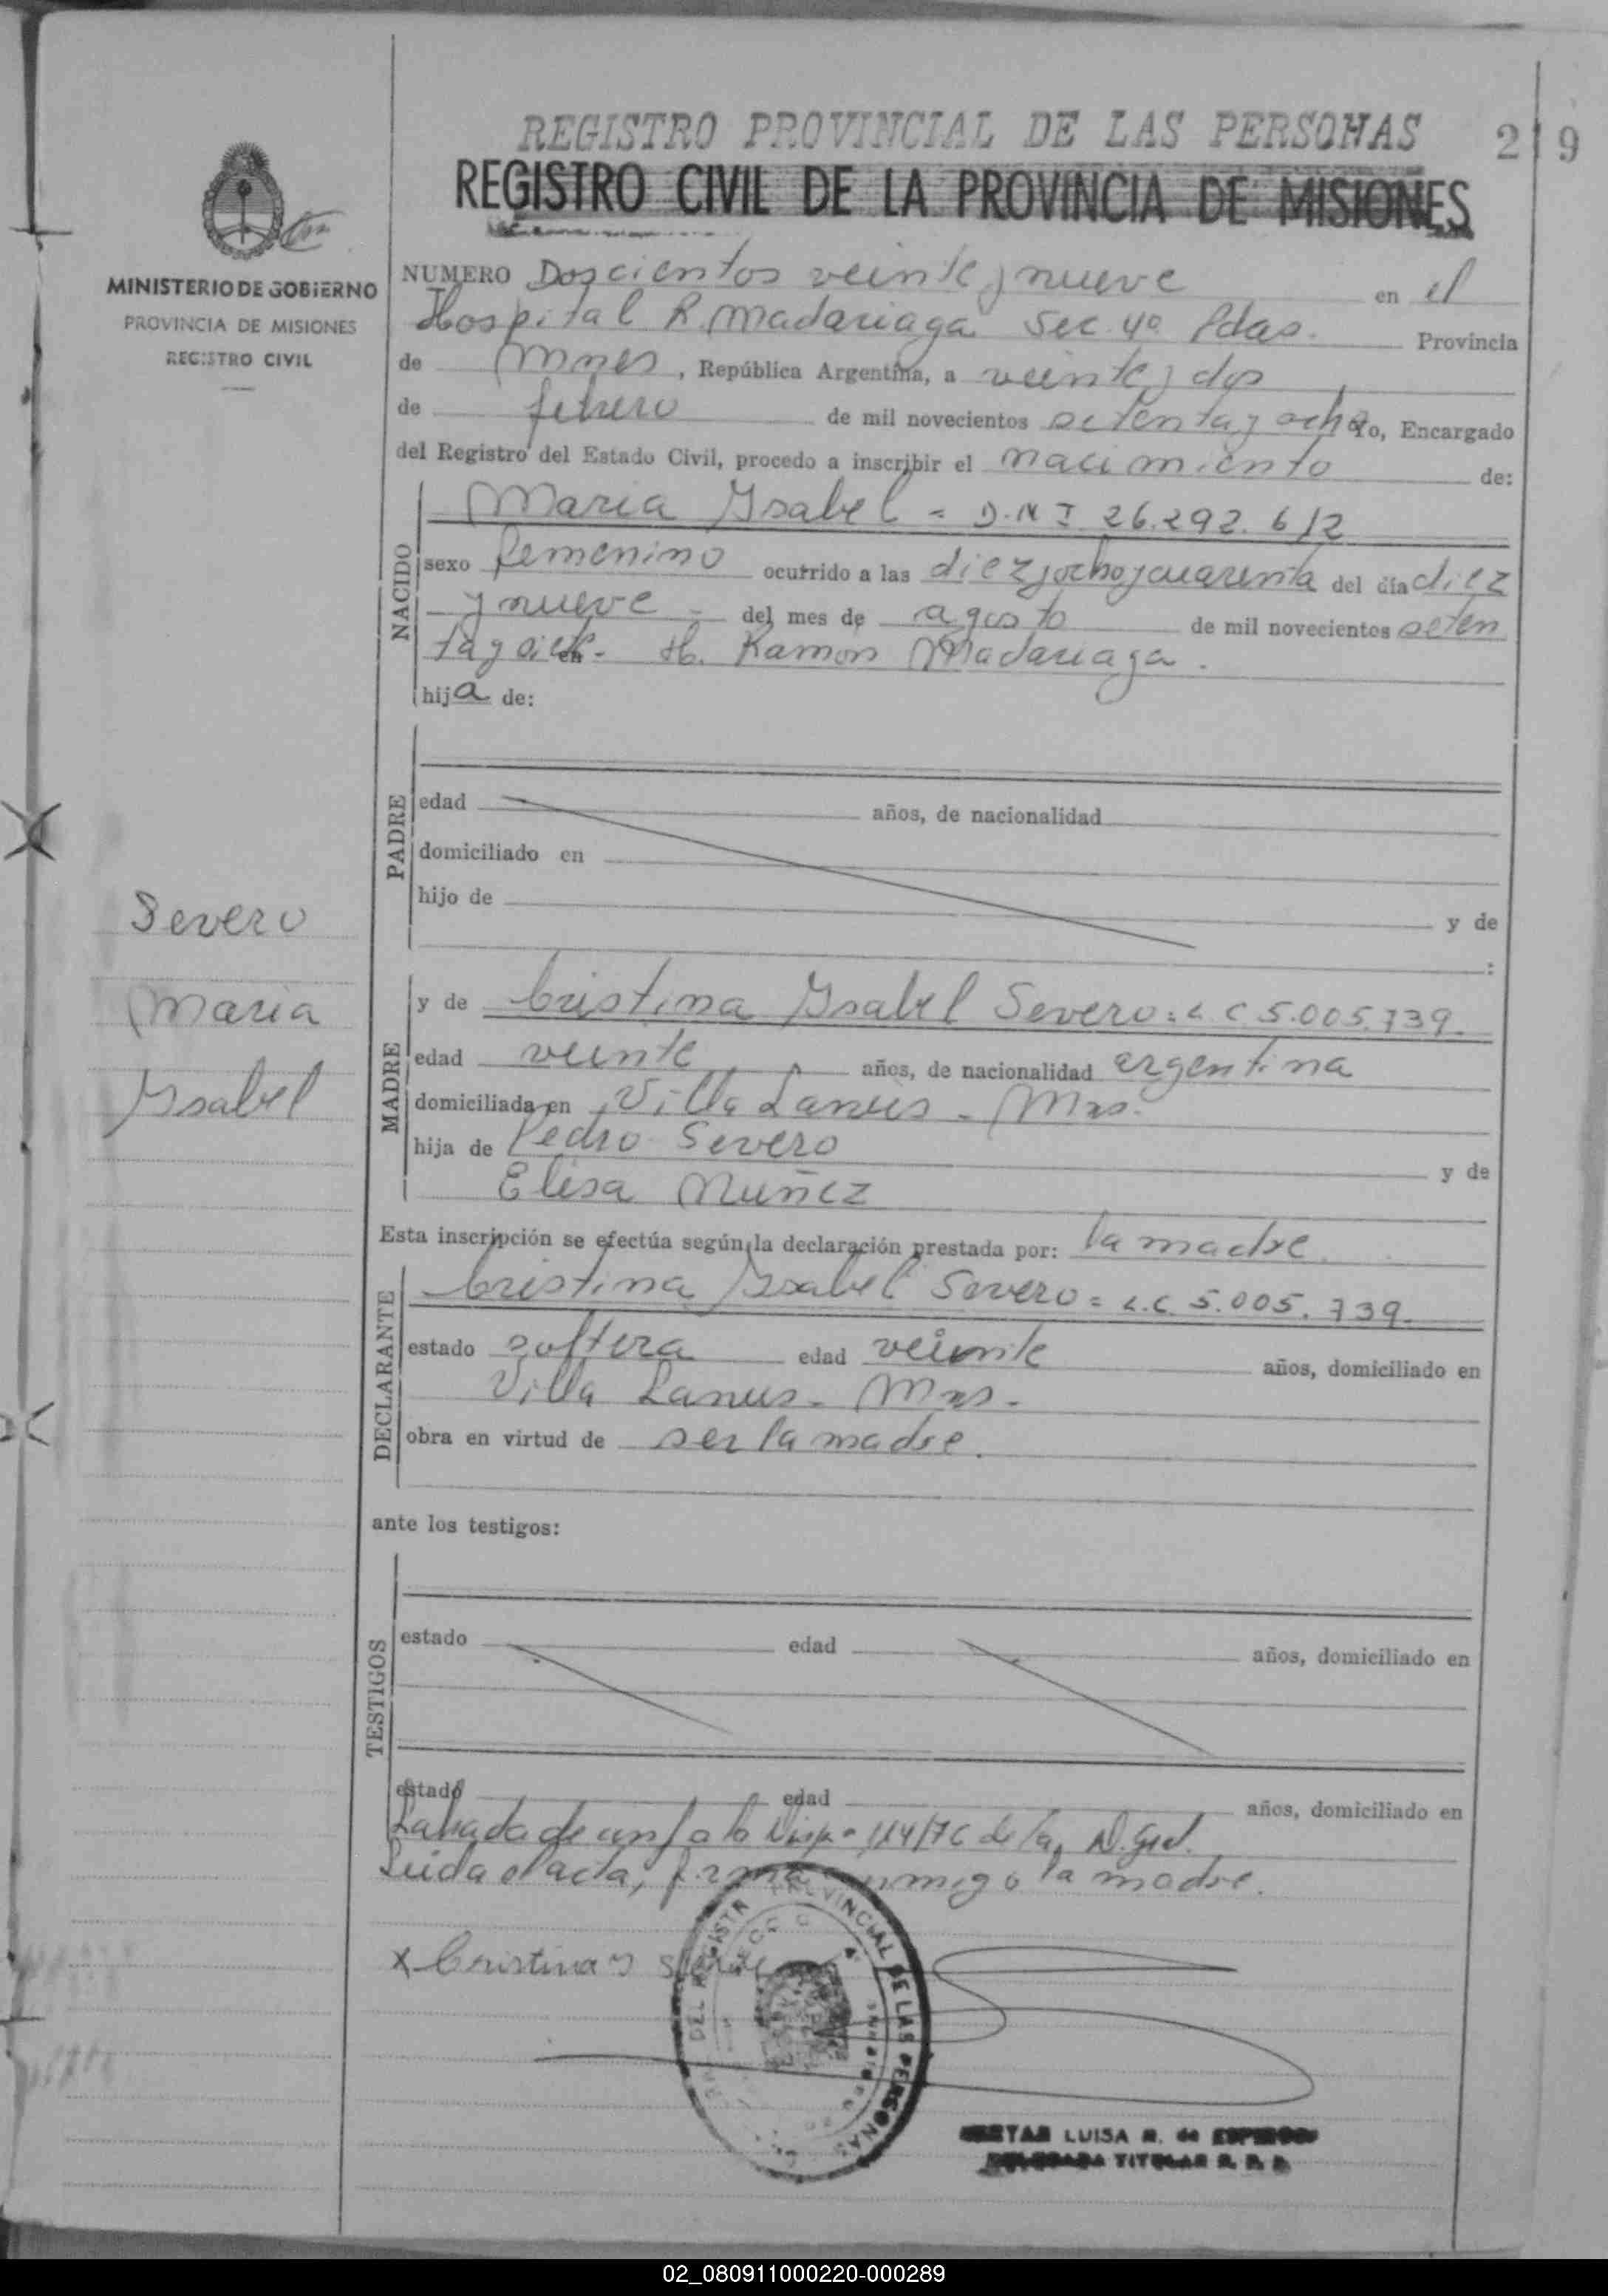 REGISTRO PROVINCIAL DE LAS PERSONAS
2 9
REGISTRO CIVIL DE LA PROVINCIA DE MISIONES
MINISTERIO DE GOBIERNO
PROVINCIA DE MISIONES
REGISTRO CIVIL
NUMERO Doscientos veinte y nueve en el
Hospital R. Madariaga Sec. 4a Pdas. Provincia
de Mnes, República Argentina, a veinte y dos
de febrero de mil novecientos setenta y ocho Yo, Encargado
del Registro del Estado Civil, procedo a inscribir el nacimiento de:
NACIDO
Maria Ysabel = D.N I 26.292.612
sexo femenino ocurrido a las diez y ocho y cuarenta del día diez
y nueve - del mes de agosto de mil novecientos seten
ta y siete en - H. Ramon Madariaga.
hija de:
PADRE
edad años, de nacionalidad
domiciliado en
hijo de y de
:
Severo
Maria
Ysabel
MADRE
y de Cristina Ysabel Severo = L C 5.005.739.
edad veinte años, de nacionalidad argentina
domiciliada en Villa Lanus - Mns.
hija de Pedro Severo y de
Elisa Nuñez
Esta inscripción se efectúa según la declaración prestada por: la madre.
DECLARANTE
Cristina Ysabel Severo = L.C. 5.005.739.
estado soltera edad veinte años, domiciliado en
Villa Lanus - Mns.
obra en virtud de ser la madre.
ante los testigos:
TESTIGOS
estado edad años, domiciliado en
estado edad años, domiciliado en
Labrada de conf a la Disp. 114/76 de la D. Gral.
Leida el acta, firma conmigo la madre.
x Cristina Y Severo
DEL REGISTRO PROVINCIAL DE LAS PERSONAS
LUISA R. de
DELEGADA TITULAR R. P. P.
02_080911000220-000289